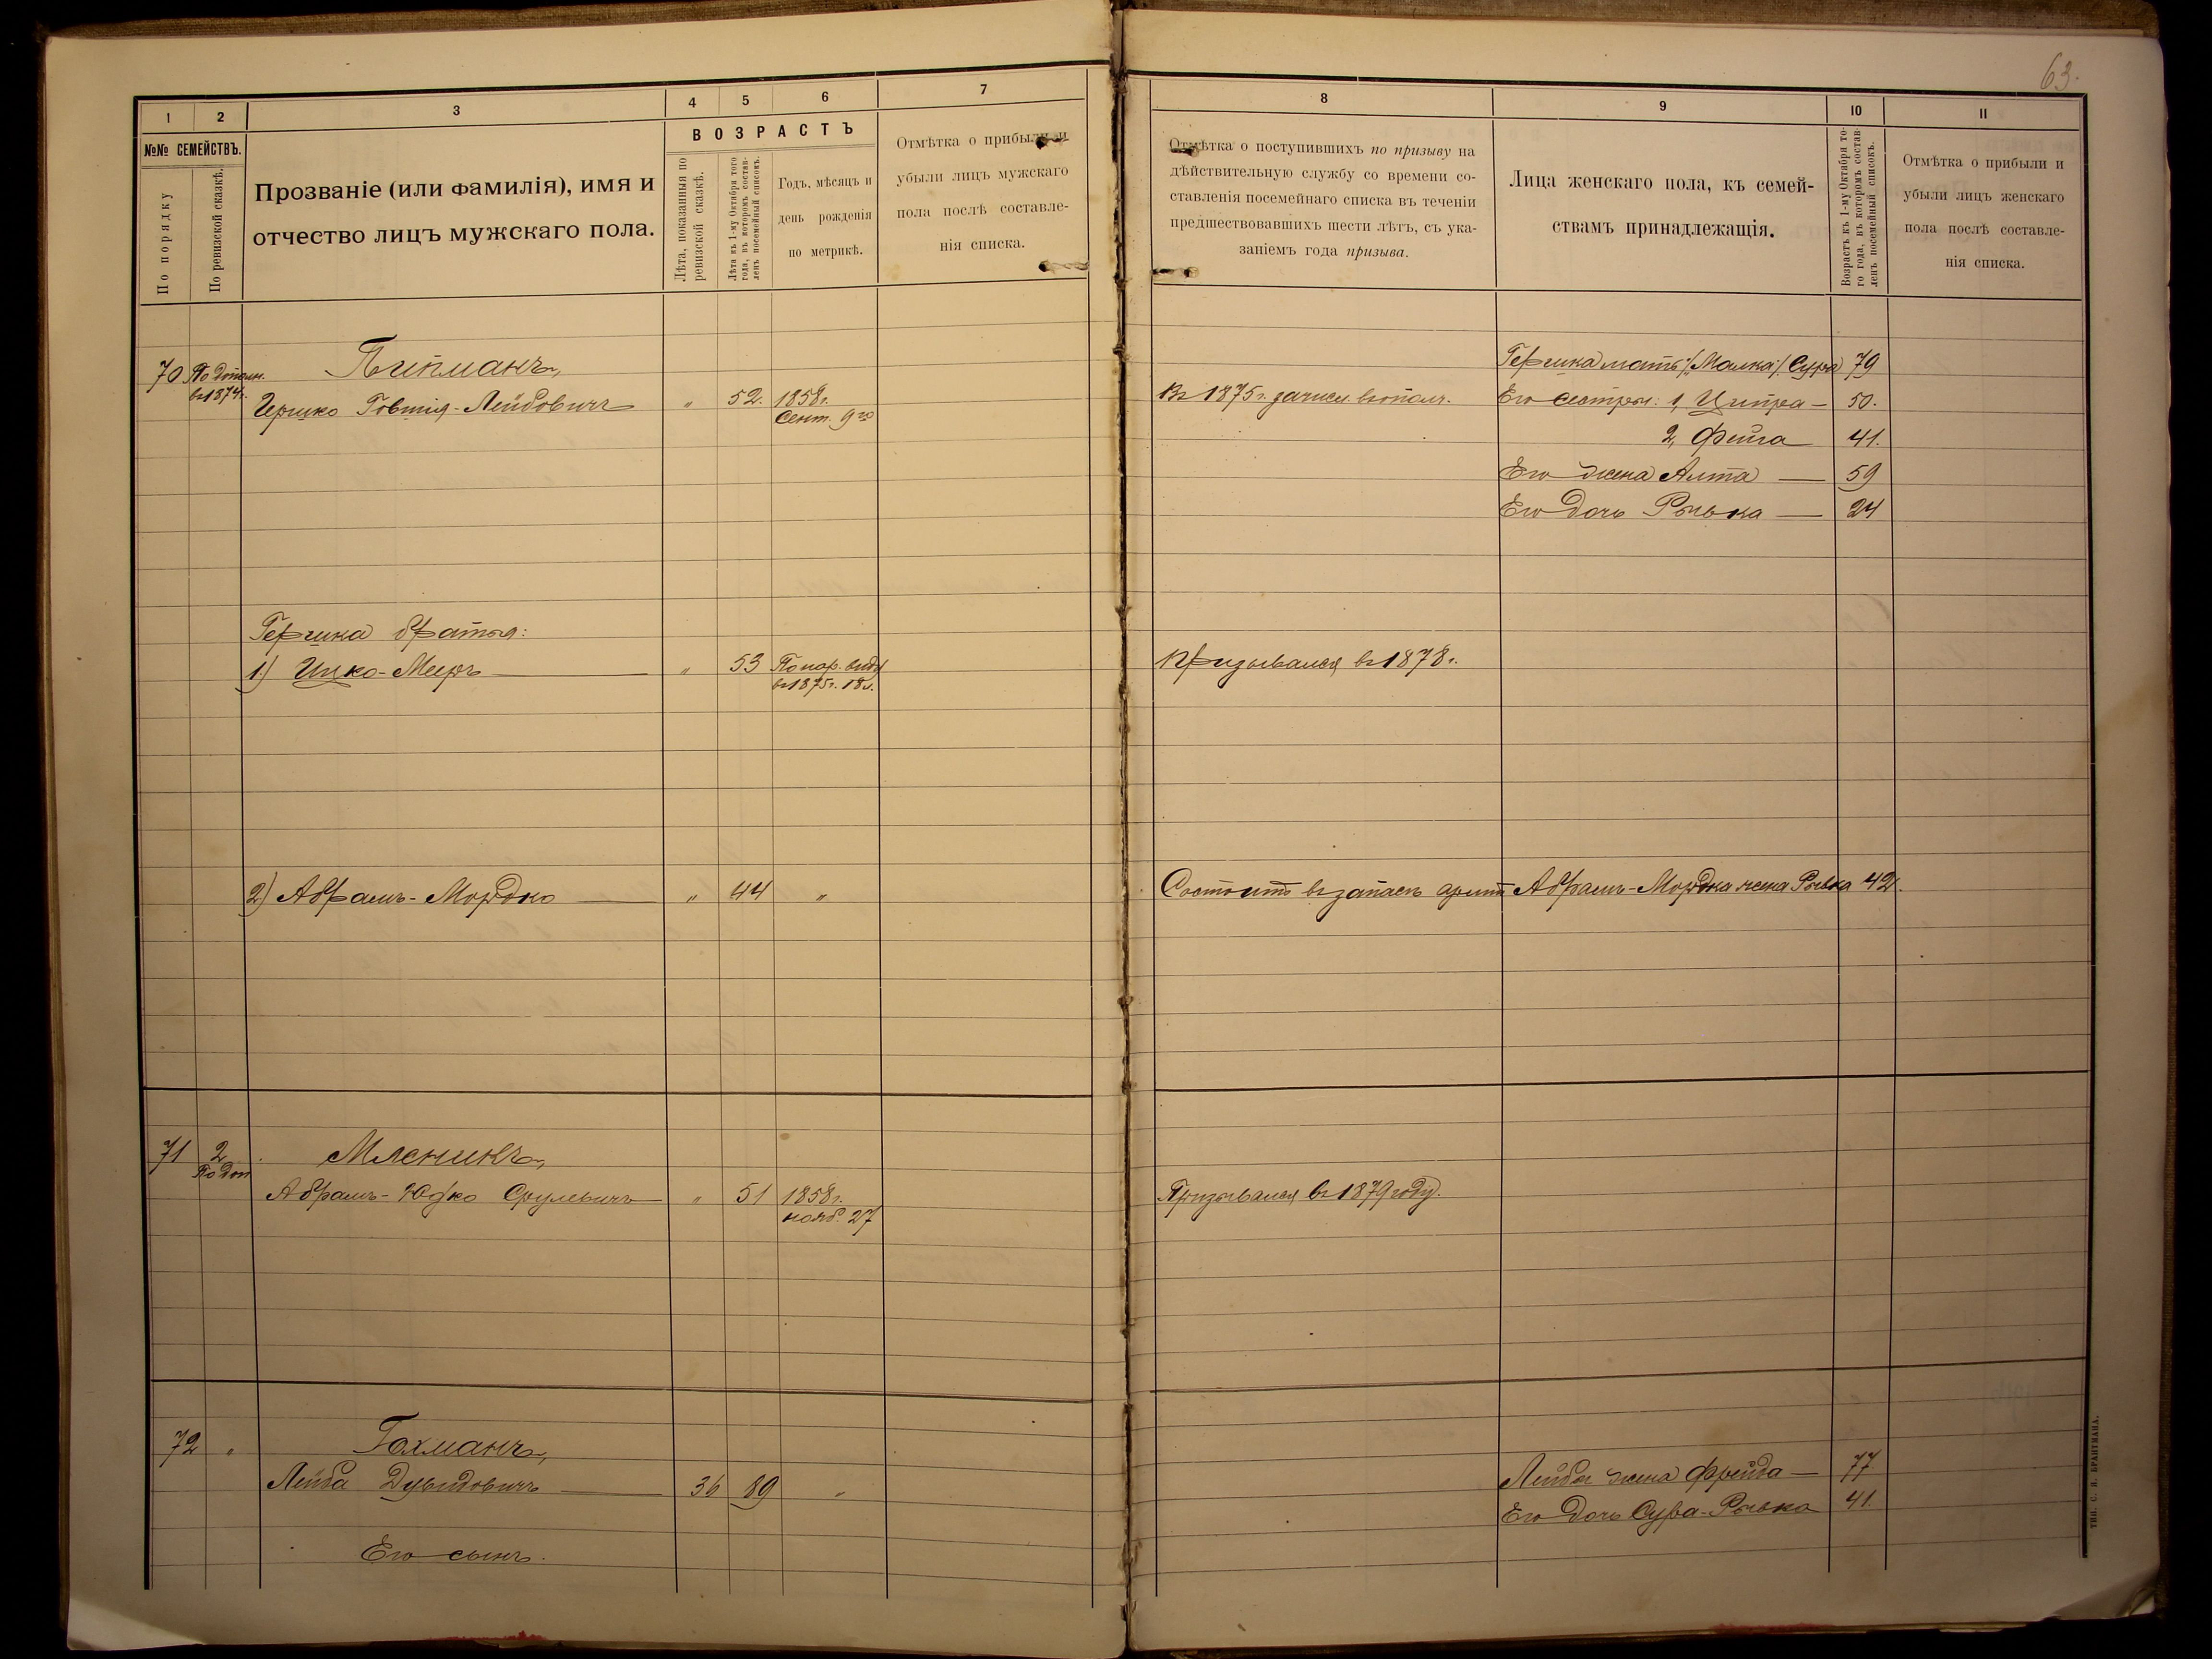 63.
1 2 3 4 5 6 7
№№ СЕМЕЙСТВЪ.
По порядку
По ревизской сказкѣ.
Прозваніе (или фамилія), имя и
отчество лицъ мужскаго пола.
ВОЗРАСТЪ
Лѣта, показанныя по
ревизской сказкѣ.
Лѣта къ 1-му Октября того
года, въ которомъ состав-
ленъ посемейный списокъ.
Годъ, мѣсяцъ и
день рожденія
по метрикѣ.
Отмѣтка о прибыли и
убыли лицъ мужскаго
пола послѣ составле-
нія списка.
70 По дополн. Питманъ,
въ 1874г.
Гершко Говшія-Лейбовичъ " 52. 1858г.
Сент. 9го
Гершка братья:
1) Ицко-Мееръ " 53 По нар. виду
въ 1875г. 18л.
2) Абрамъ-Мордко " 44 "
71 2 Мленикъ,
По доп.
Абрамъ-Юдко Срулевичъ " 51 1858г.
нояб. 27
72 " Гохманъ,
Лейба Дувидовичъ 36 89 "
Его сынъ.
8 9 10 11
Отмѣтка о поступившихъ по призыву на
дѣйствительную службу со времени со-
ставленія посемейнаго списка въ теченіи
предшествовавшихъ шести лѣтъ, съ ука-
заніемъ года призыва.
Лица женскаго пола, къ семей-
ствамъ принадлежащія.
Возрастъ къ 1-му Октября то-
го года, въ которомъ состав-
ленъ посемейный списокъ.
Отмѣтка о прибыли и
убыли лицъ женскаго
пола послѣ составле-
нія списка.
Гершка мать /Малка/ Сура 79
Въ 1875г. зачисл. въ ополч. Его сестры: 1, Ципра 50.
2, Фейга 41.
Его жена Алта 59
Его дочь Рывка 24
Призывался въ 1878г.
Состоитъ въ запасѣ арміи Абрамъ-Мордка жена Рывка 42.
Призывался въ 1879 году.
Лейбы жена Фрейда 77
Его дочь Сура-Рывка 41.
ТИП. С. Я. БРАНТМАНА.